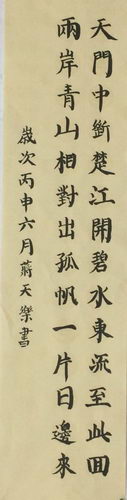 天門中斷楚江開碧水東流至此回
兩岸青山相對出孤帆一片日邊來
歲次丙申六月蔣天樂書